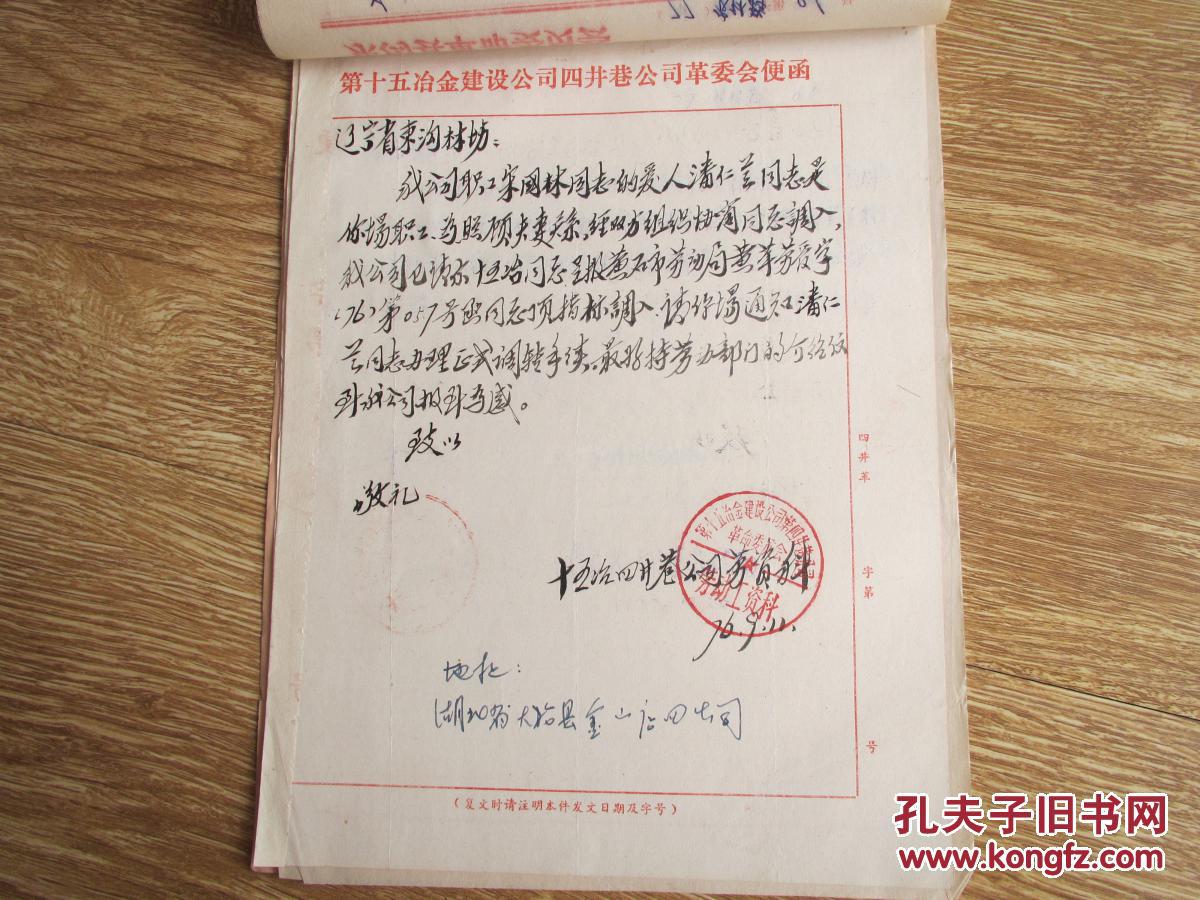 第十五冶金建设公司四井巷公司革委会便函
辽宁省东沟林场:
我公司职工宋国林同志的爱人潘仁兰同志是
你場职工、为照顾夫妻关系,经双方组织协商同意調入,
我公司已请示十五冶同意呈报黄石市劳动局黄革劳发字
(76)第057号函同意顶指标調入。请你場通知潘仁
兰同志办理正式调转手续、最好持劳动部门的介绍信
到我公司报到为感。
致以
敬礼
十五冶四井巷公司劳资科
76.9.11.
第十五冶金建设公司第四井巷公司
革命委员会
劳动工资科
地址:
湖北省大冶县金山店四公司
四井革
字第
号
(复文时请注明本件发文日期及字号)
孔夫子旧书网
www.kongfz.com